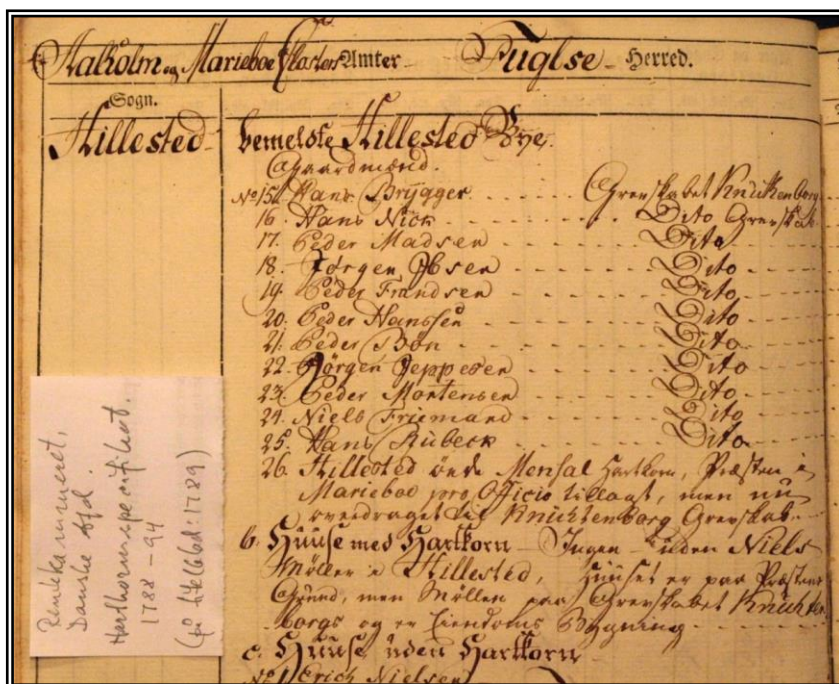 Aalholm og Marieboe Closters Amter Fuglse Herred.
Sogn.
Hillested
bemeldte Hillested Bye.
Gaardmænd.
No 15. Hans Brygger Grevskabet Knutenborg
16. Hans Nick Dito Grevskab
17. Peder Madsen Dito
18. Jørgen Ibsen Dito
19. Peder Frandsen Dito
20. Peder Hanssen Dito
21. Peder Bøn Dito
22. Jörgen Jeppesen Dito
23. Peder Mortensen Dito
24. Niels Friemand Dito
25. Hans Rübeck Dito
26. Hillested Mensal Hartkorn, Præsten i
Marieboe pro Officio tillagt, men nu
overdraget til Knuthenborg Grevskab.
b. Huuse med Hartkorn Ingen uden Niels
Möller i Hillested, Huuset er paa Præstens
Grund, men Møllen paa Grevskabet Knuthen
borgs og er Eiendoms Bygning
c. Huuse uden Hartkorn
No 1. Erich Nielsen
Rentekammeret,
Danske afd.
Hartkornspecifikat.
1788-94
(på titelblad: 1789)